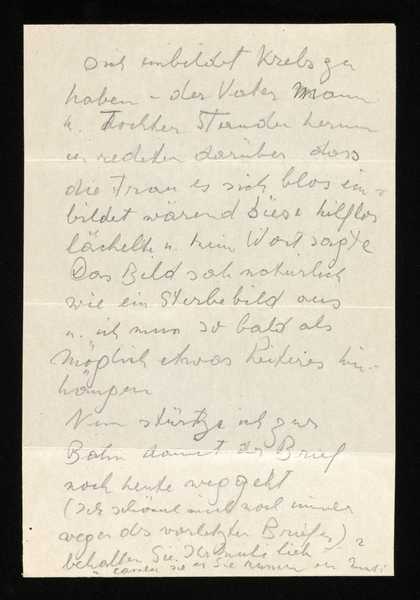 sich einbildet Krebs zu
haben – der Vater Mann
u. Tochter standen herum
u redeten darüber dass
die Frau es sich blos ein-
bildet wärend diese hilflos
lächelte u. kein Wort sagte
Das Bild sah natürlich
wie ein Sterbebild aus
u. ich muss so bald als
möglich etwas Heiteres hin-
hängen
Nun stürtze ich zur
Bahn damit der Brief
noch heute weggeht
(Ich schäme mich noch immer
wegen des vorletzten Briefes) u
behalten Sie Ihr lieb